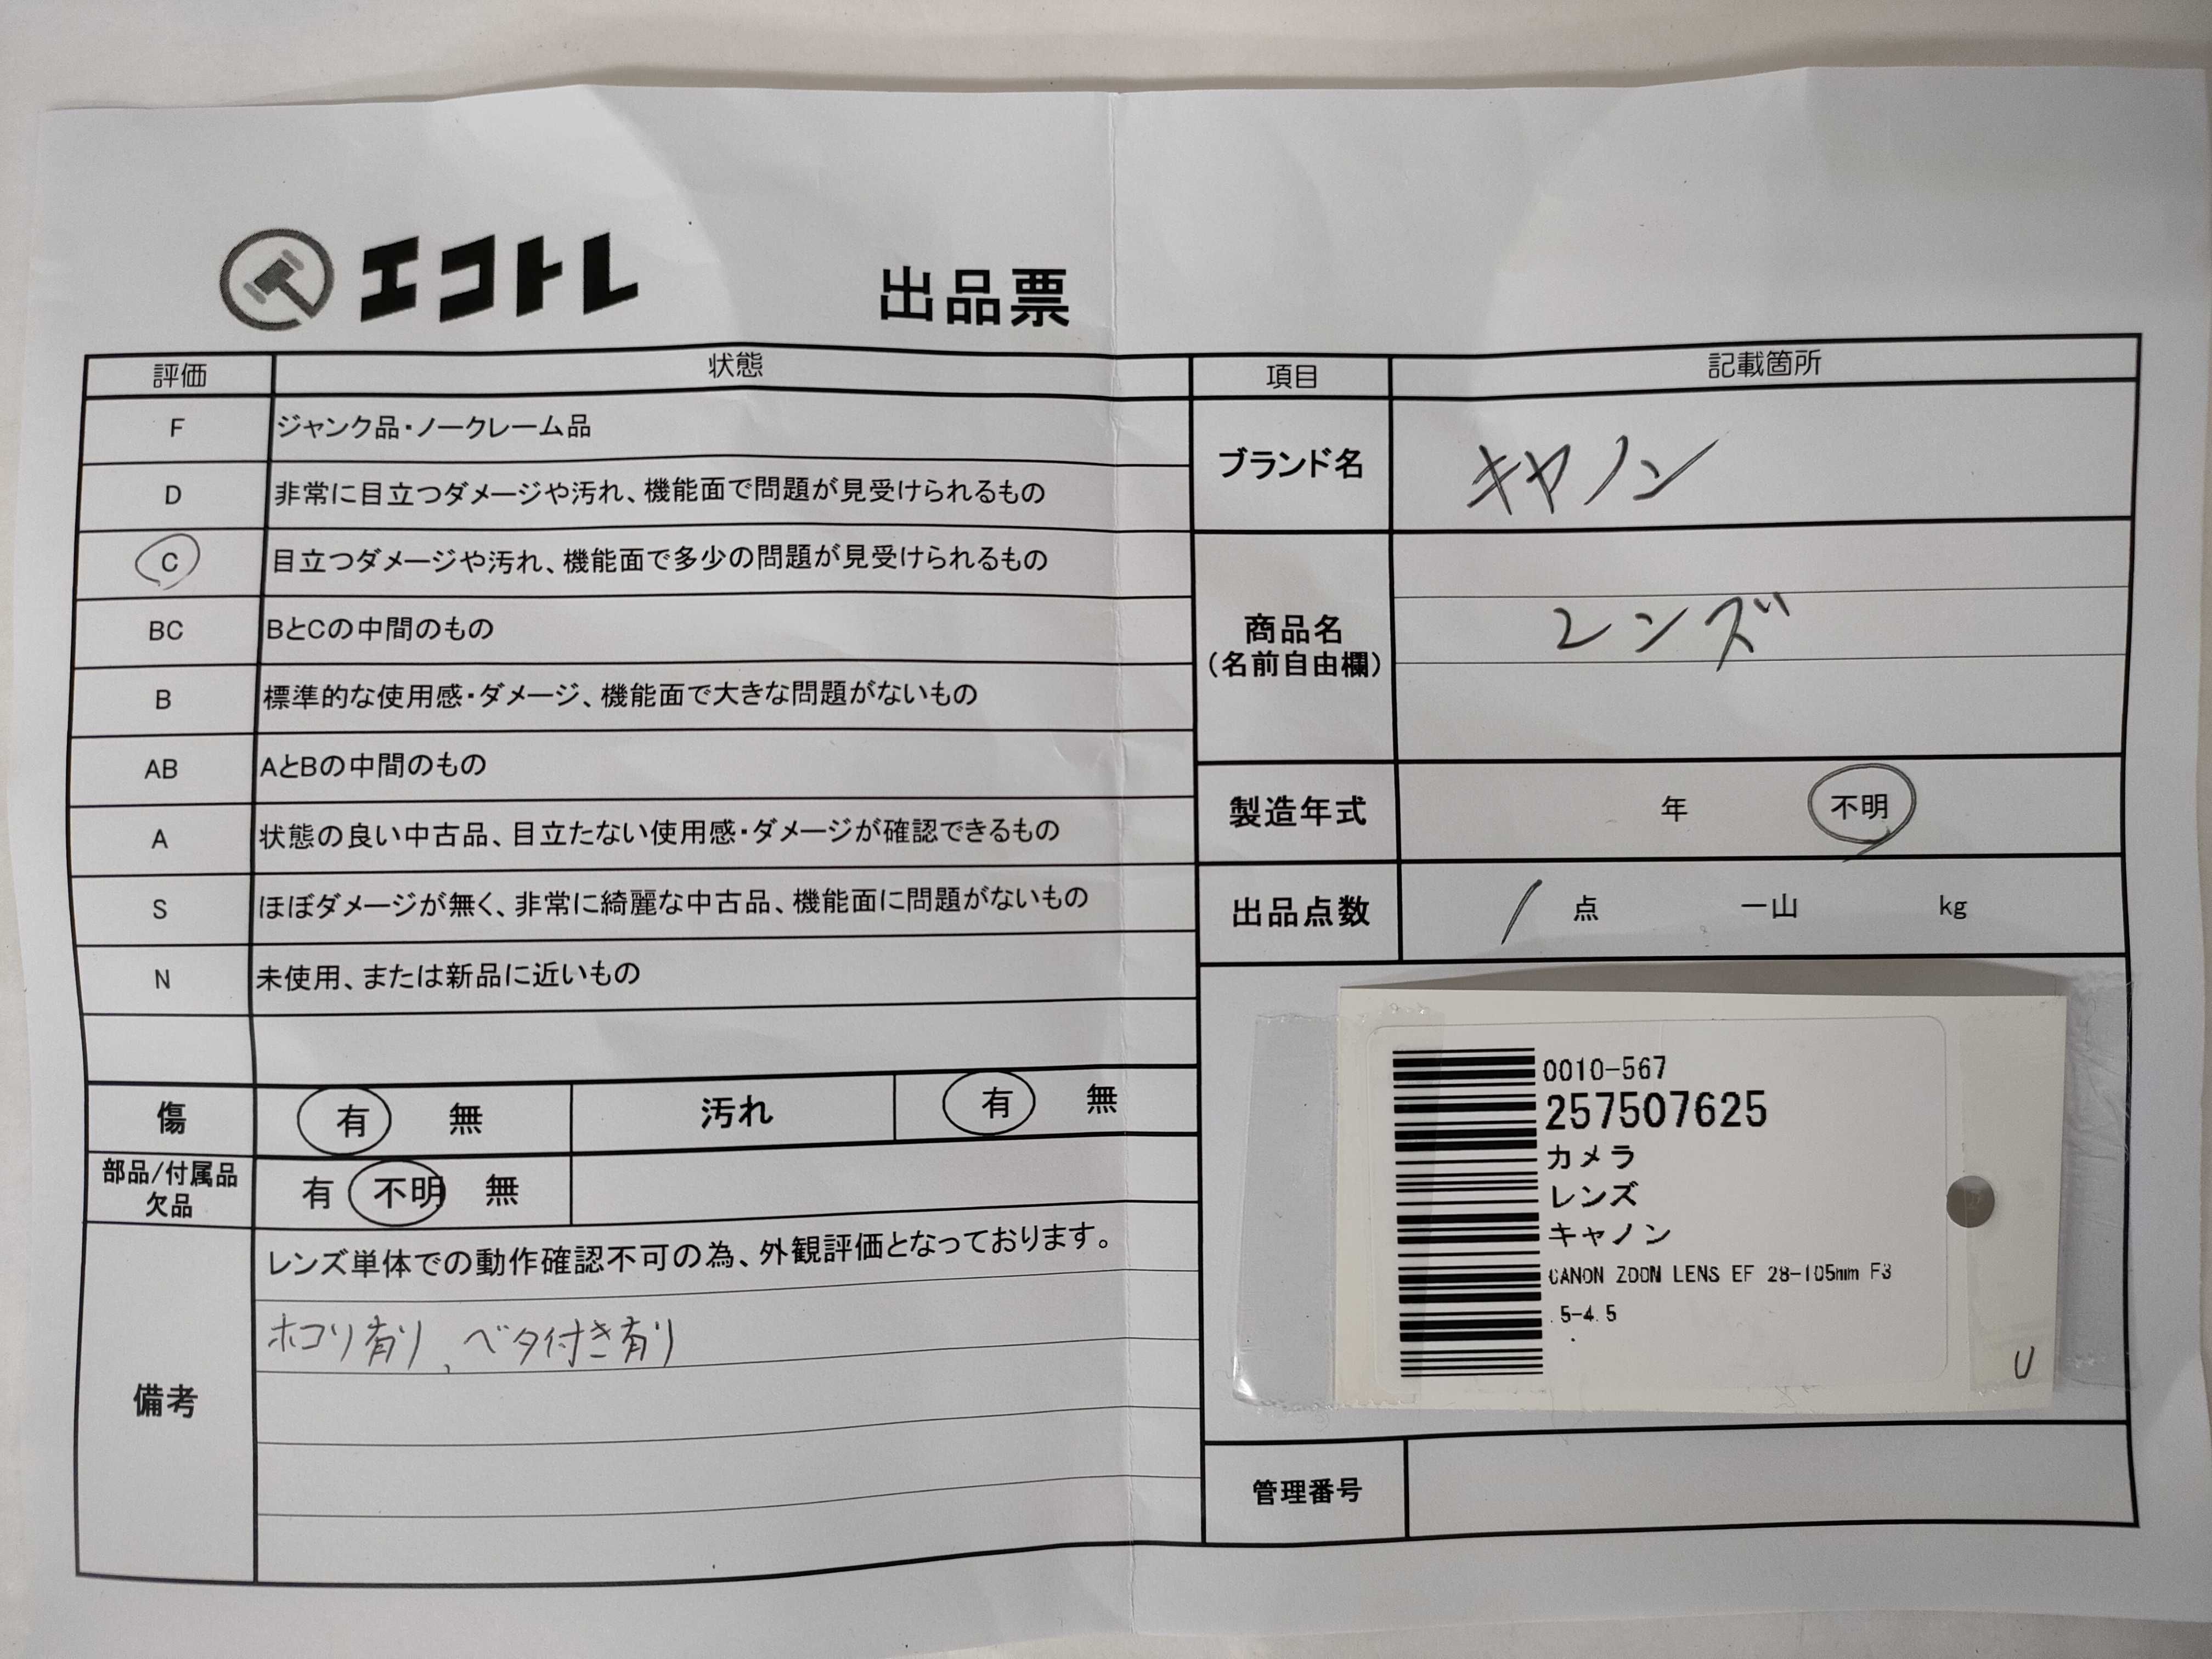 エコトレ
出品票
評価 状態
F ジャンク品・ノークレーム品
D 非常に目立つダメージや汚れ、機能面で問題が見受けられるもの
C 目立つダメージや汚れ、機能面で多少の問題が見受けられるもの
BC BとCの中間のもの
B 標準的な使用感・ダメージ、機能面で大きな問題がないもの
AB AとBの中間のもの
A 状態の良い中古品、目立たない使用感・ダメージが確認できるもの
S ほぼダメージが無く、非常に綺麗な中古品、機能面に問題がないもの
N 未使用、または新品に近いもの
傷 有 無 汚れ 有 無
部品/付属品
欠品
有 不明 無
備考
レンズ単体での動作確認不可の為、外観評価となっております。
ホコリ有り、ベタ付き有り
項目 記載箇所
ブランド名 キヤノン
商品名
(名前自由欄)
レンズ
製造年式 年 不明
出品点数 1 点 一山 kg
0010-567
257507625
カメラ
レンズ
キャノン
CANON ZOOM LENS EF 28-105mm F3
.5-4.5
U
管理番号